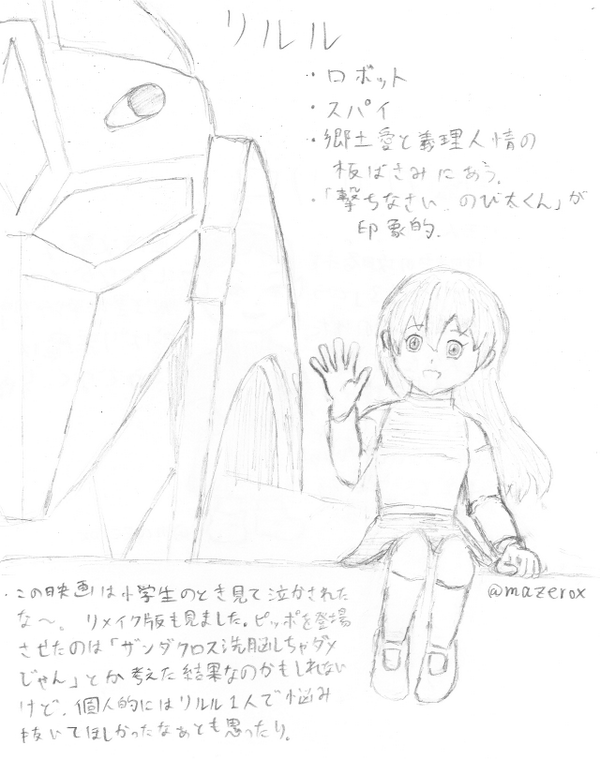 リルル
・ロボット
・スパイ
・郷土愛と義理人情の
板ばさみにあう。
・「撃ちなさい、のび太くん」が
印象的.
・この映画は小学生のとき見て泣かされた
な〜。リメイク版も見ました。ピッポを登場
させたのは「ザンダクロス洗脳しちゃダメ
じゃん」とか考えた結果なのかもしれない
けど、個人的にはリルル1人で悩み
抜いてほしかったなぁとも思ったり。
@mazerox